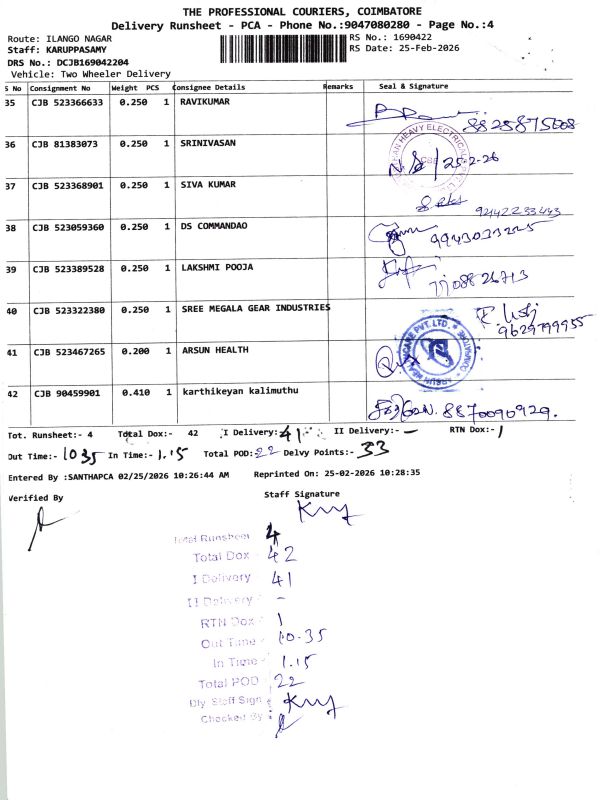 THE PROFESSIONAL COURIERS, COIMBATORE
Delivery Runsheet - PCA - Phone No.:9047080280 - Page No.:4
Route: ILANGO NAGAR
RS No.: 1690422
Staff: KARUPPASAMY
RS Date: 25-Feb-2026
DRS No.: DCJB169042204
Vehicle: Two Wheeler Delivery
S No Consignment No Weight PCS Consignee Details Remarks Seal & Signature
35 CJB 523366633 0.250 1 RAVIKUMAR
36 CJB 81383073 0.250 1 SRINIVASAN 25-2-26
37 CJB 523368901 0.250 1 SIVA KUMAR
38 CJB 523059360 0.250 1 DS COMMANDAO
39 CJB 523389528 0.250 1 LAKSHMI POOJA
40 CJB 523322380 0.250 1 SREE MEGALA GEAR INDUSTRIES 9629799955
41 CJB 523467265 0.200 1 ARSUN HEALTH
42 CJB 90459901 0.410 1 karthikeyan kalimuthu 8870090929.
Tot. Runsheet:- 4 Total Dox:- 42 I Delivery:- 41 II Delivery:- - RTN Dox:- 1
Out Time:- 10 35 In Time:- 1.15 Total POD:- 22 Delvy Points:- 33
Entered By :SANTHAPCA 02/25/2026 10:26:44 AM Reprinted On: 25-02-2026 10:28:35
Verified By Staff Signature
Total Runsheet 4
Total Dox 42
I Delivery 41
II Delivery -
RTN Dox 1
Out Time 10-35
In Time 1.15
Total POD 22
Dly. Staff Sign
Checked By